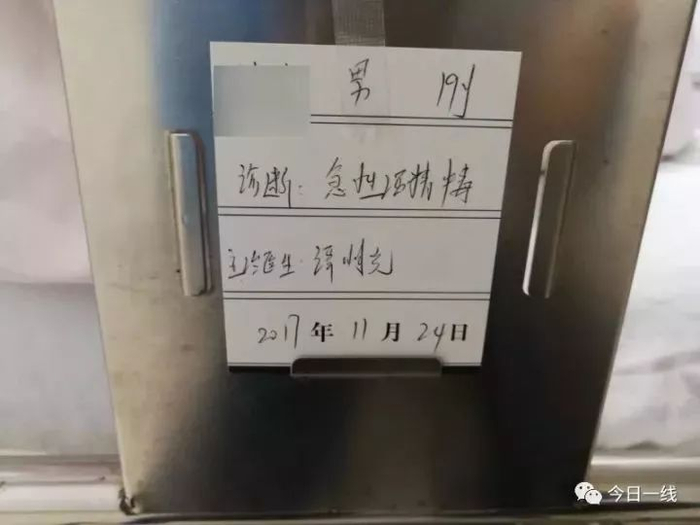 男 19岁
诊断：急性酒精中毒
主治医生：谭明光
2017年11月24日
今日一线